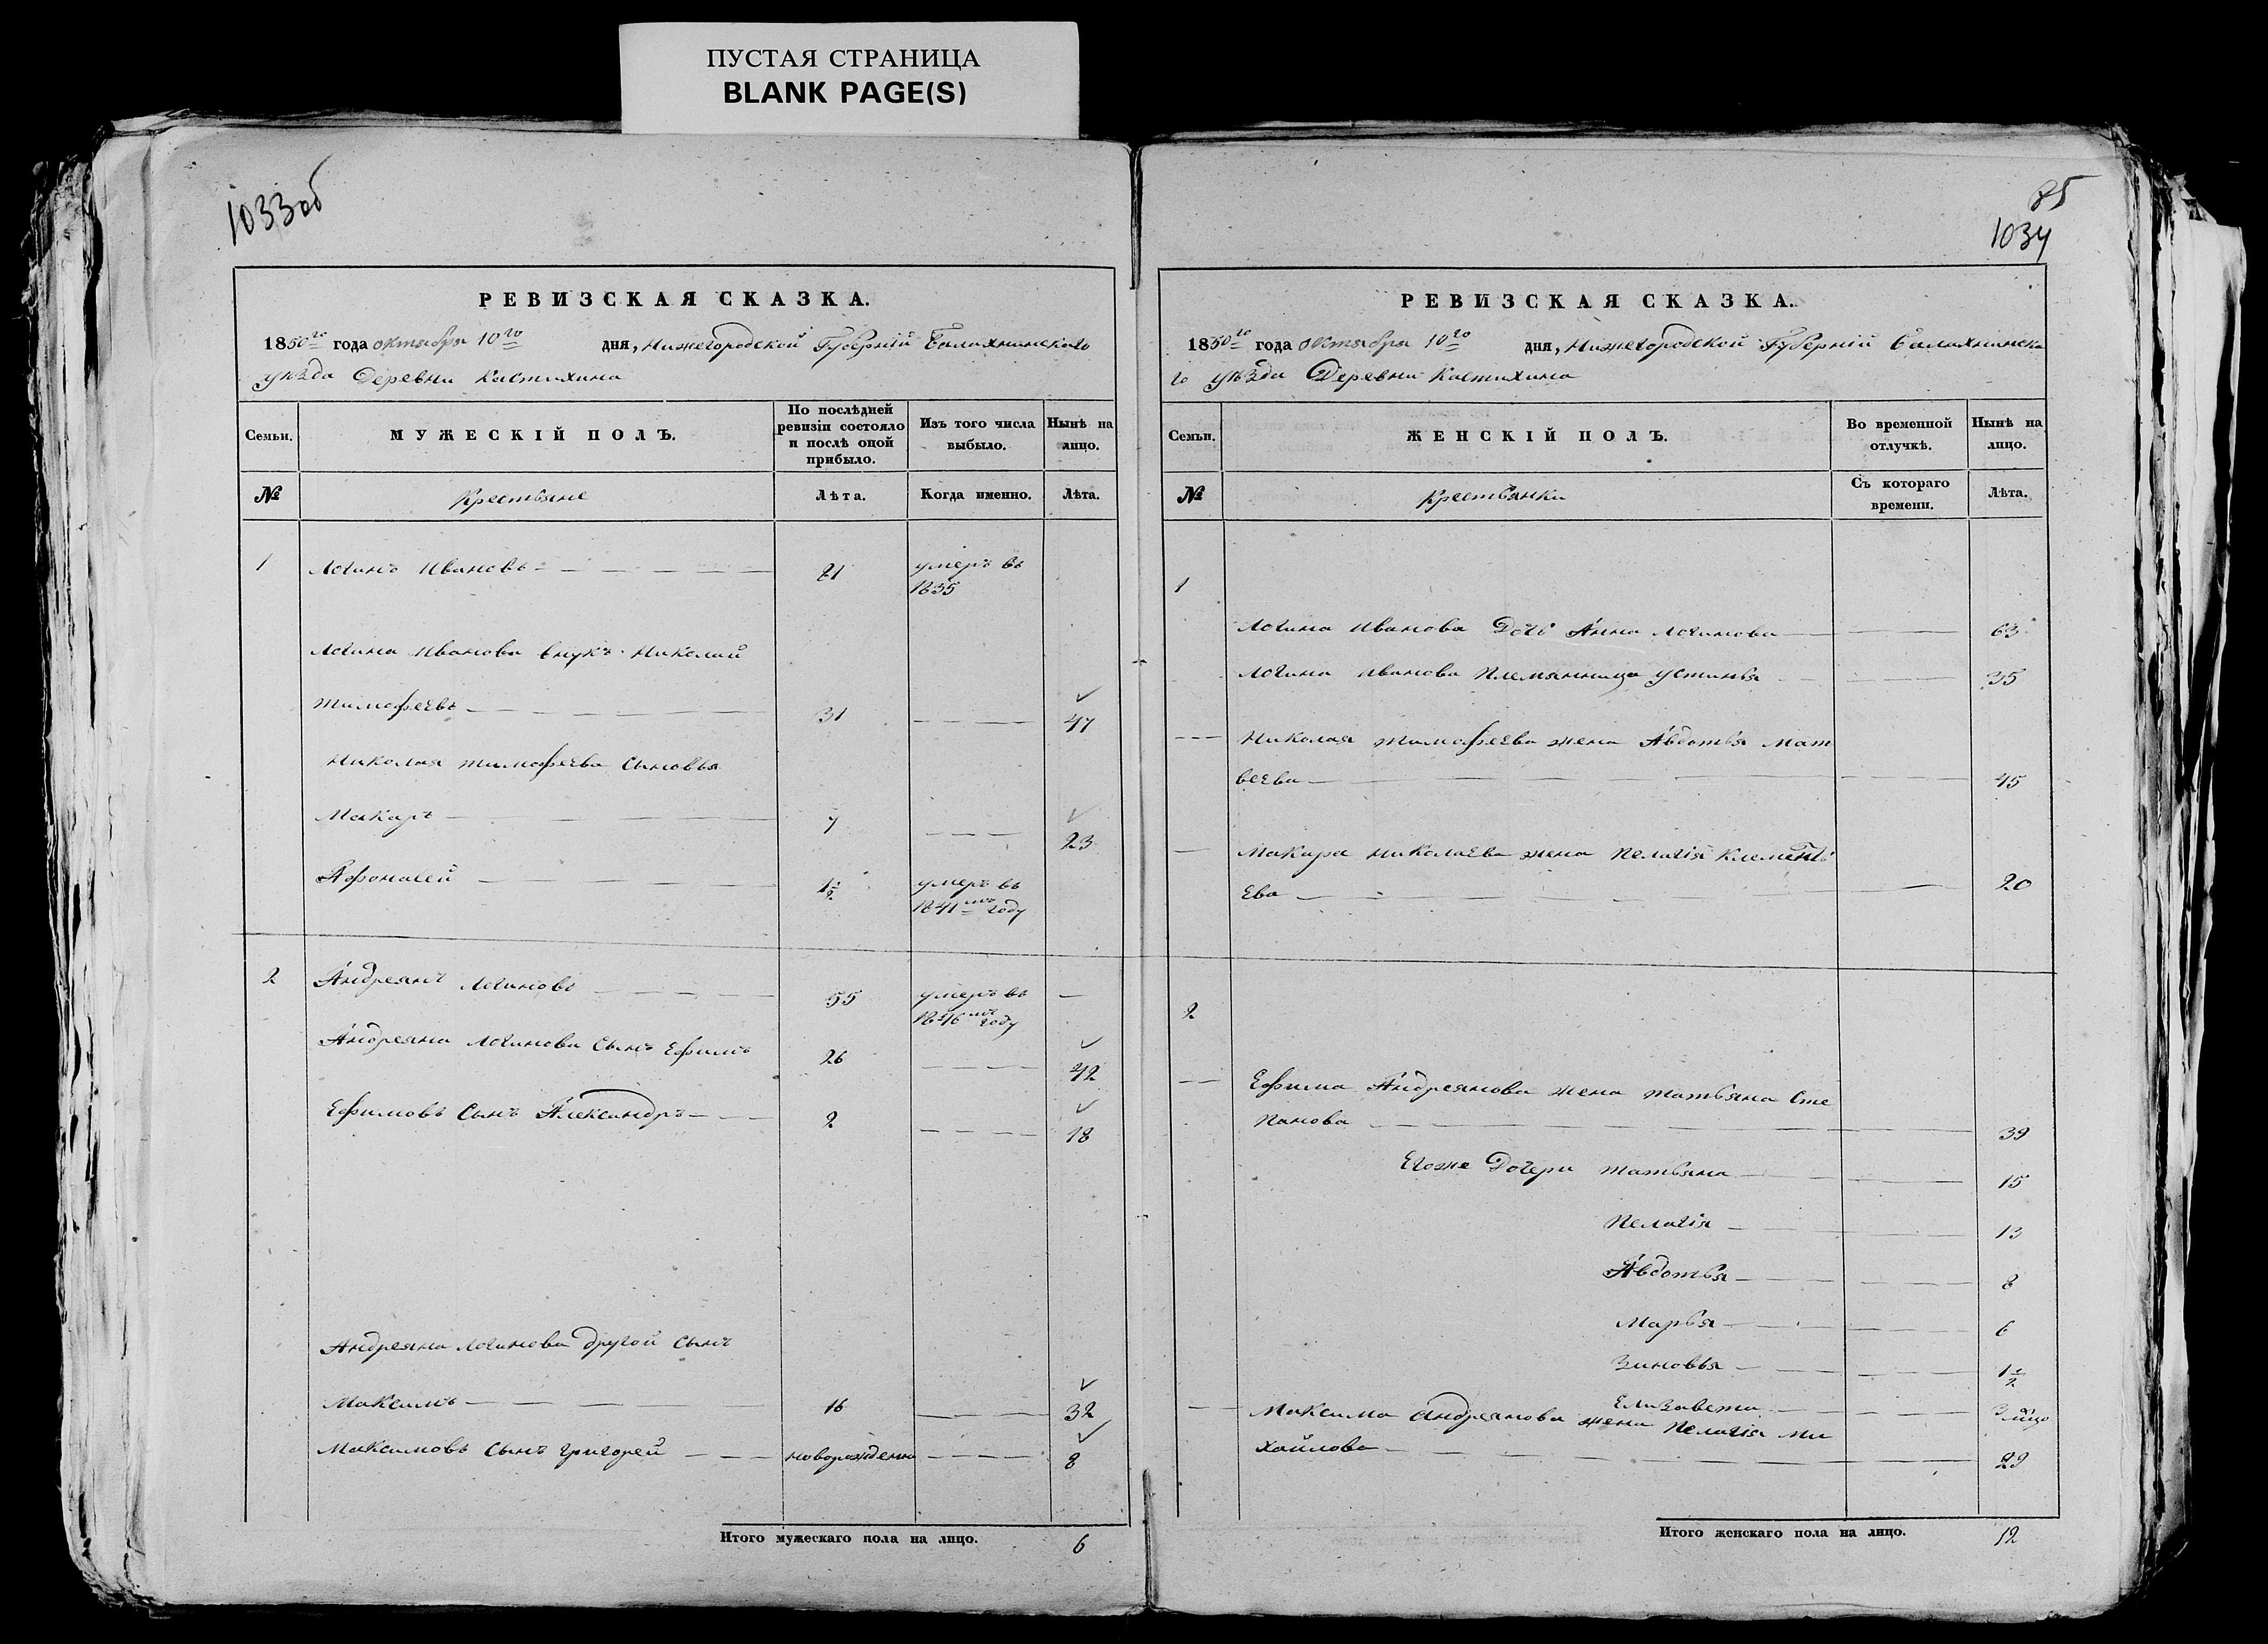 ПУСТАЯ СТРАНИЦА
BLANK PAGE(S)
1033об
РЕВИЗСКАЯ СКАЗКА.
1850го года октября 10го дня, Нижегородской Губерніи Балахнинскаго
уѣзда Деревни Кастихина
Семьи.
МУЖЕСКІЙ ПОЛЪ.
По послѣдней ревизіи состояло и послѣ оной прибыло.
Изъ того числа выбыло.
Нынѣ на лицо.
№ Крестьяне Лѣта. Когда именно. Лѣта.
1 Логинъ Ивановъ 81 умеръ въ
1835
Логина Иванова внукъ Николай
Тимофеевъ 31 47
Николая Тимофеева сыновья
Макаръ 7 23
Афонасей 1½ умеръ въ
1841мъ году
2 Андреянъ Логиновъ 55 умеръ въ
1846мъ году
Андреяна Логинова сынъ Ефимъ 26 42
Ефимовъ сынъ Александръ 2 18
Андреяна Логинова другой сынъ
Максимъ 16 32
Максимовъ сынъ Григорей новорожденно 8
Итого мужескаго пола на лицо. 6
85
1034
РЕВИЗСКАЯ СКАЗКА.
1850го года октября 10го дня, Нижегородской Губерніи Балахнинска
го уѣзда Деревни Кастихина
Семьи.
ЖЕНСКІЙ ПОЛЪ.
Во временной отлучкѣ.
Нынѣ на лицо.
№ Крестьянки Съ котораго времени. Лѣта.
1
Логина Иванова Дочь Анна Логинова 63
Логина Иванова племянница Устинья 35
Николая Тимофеева жена Авдотья Мат
веева 45
Макара Николаева жена Пелагія Клементь
ева 20
2
Ефима Андреянова жена Татьяна Сте
панова 39
Егоже Дочери Татьяна 15
Пелагія 13
Авдотья 8
Марья 6
Зиновья 1½
Елизавета 3
Максима Андреянова жена Пелагія Ми
хайлова 29
Итого женскаго пола на лицо. 12